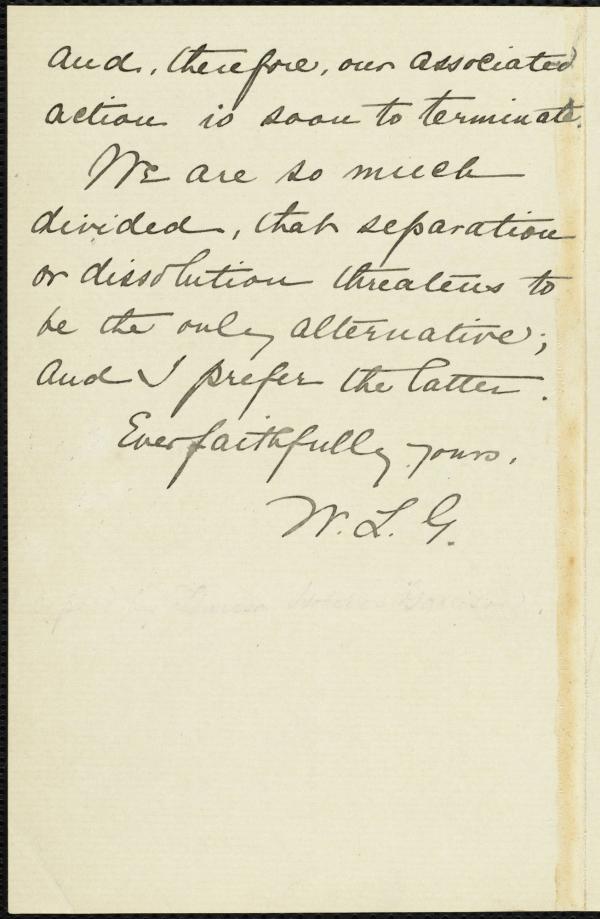 and, therefore, our associated
action is soon to terminate.
We are so much
divided, that separation
or dissolution threatens to
be the only alternative;
and I prefer the latter.
Ever faithfully yours,
W. L. G.